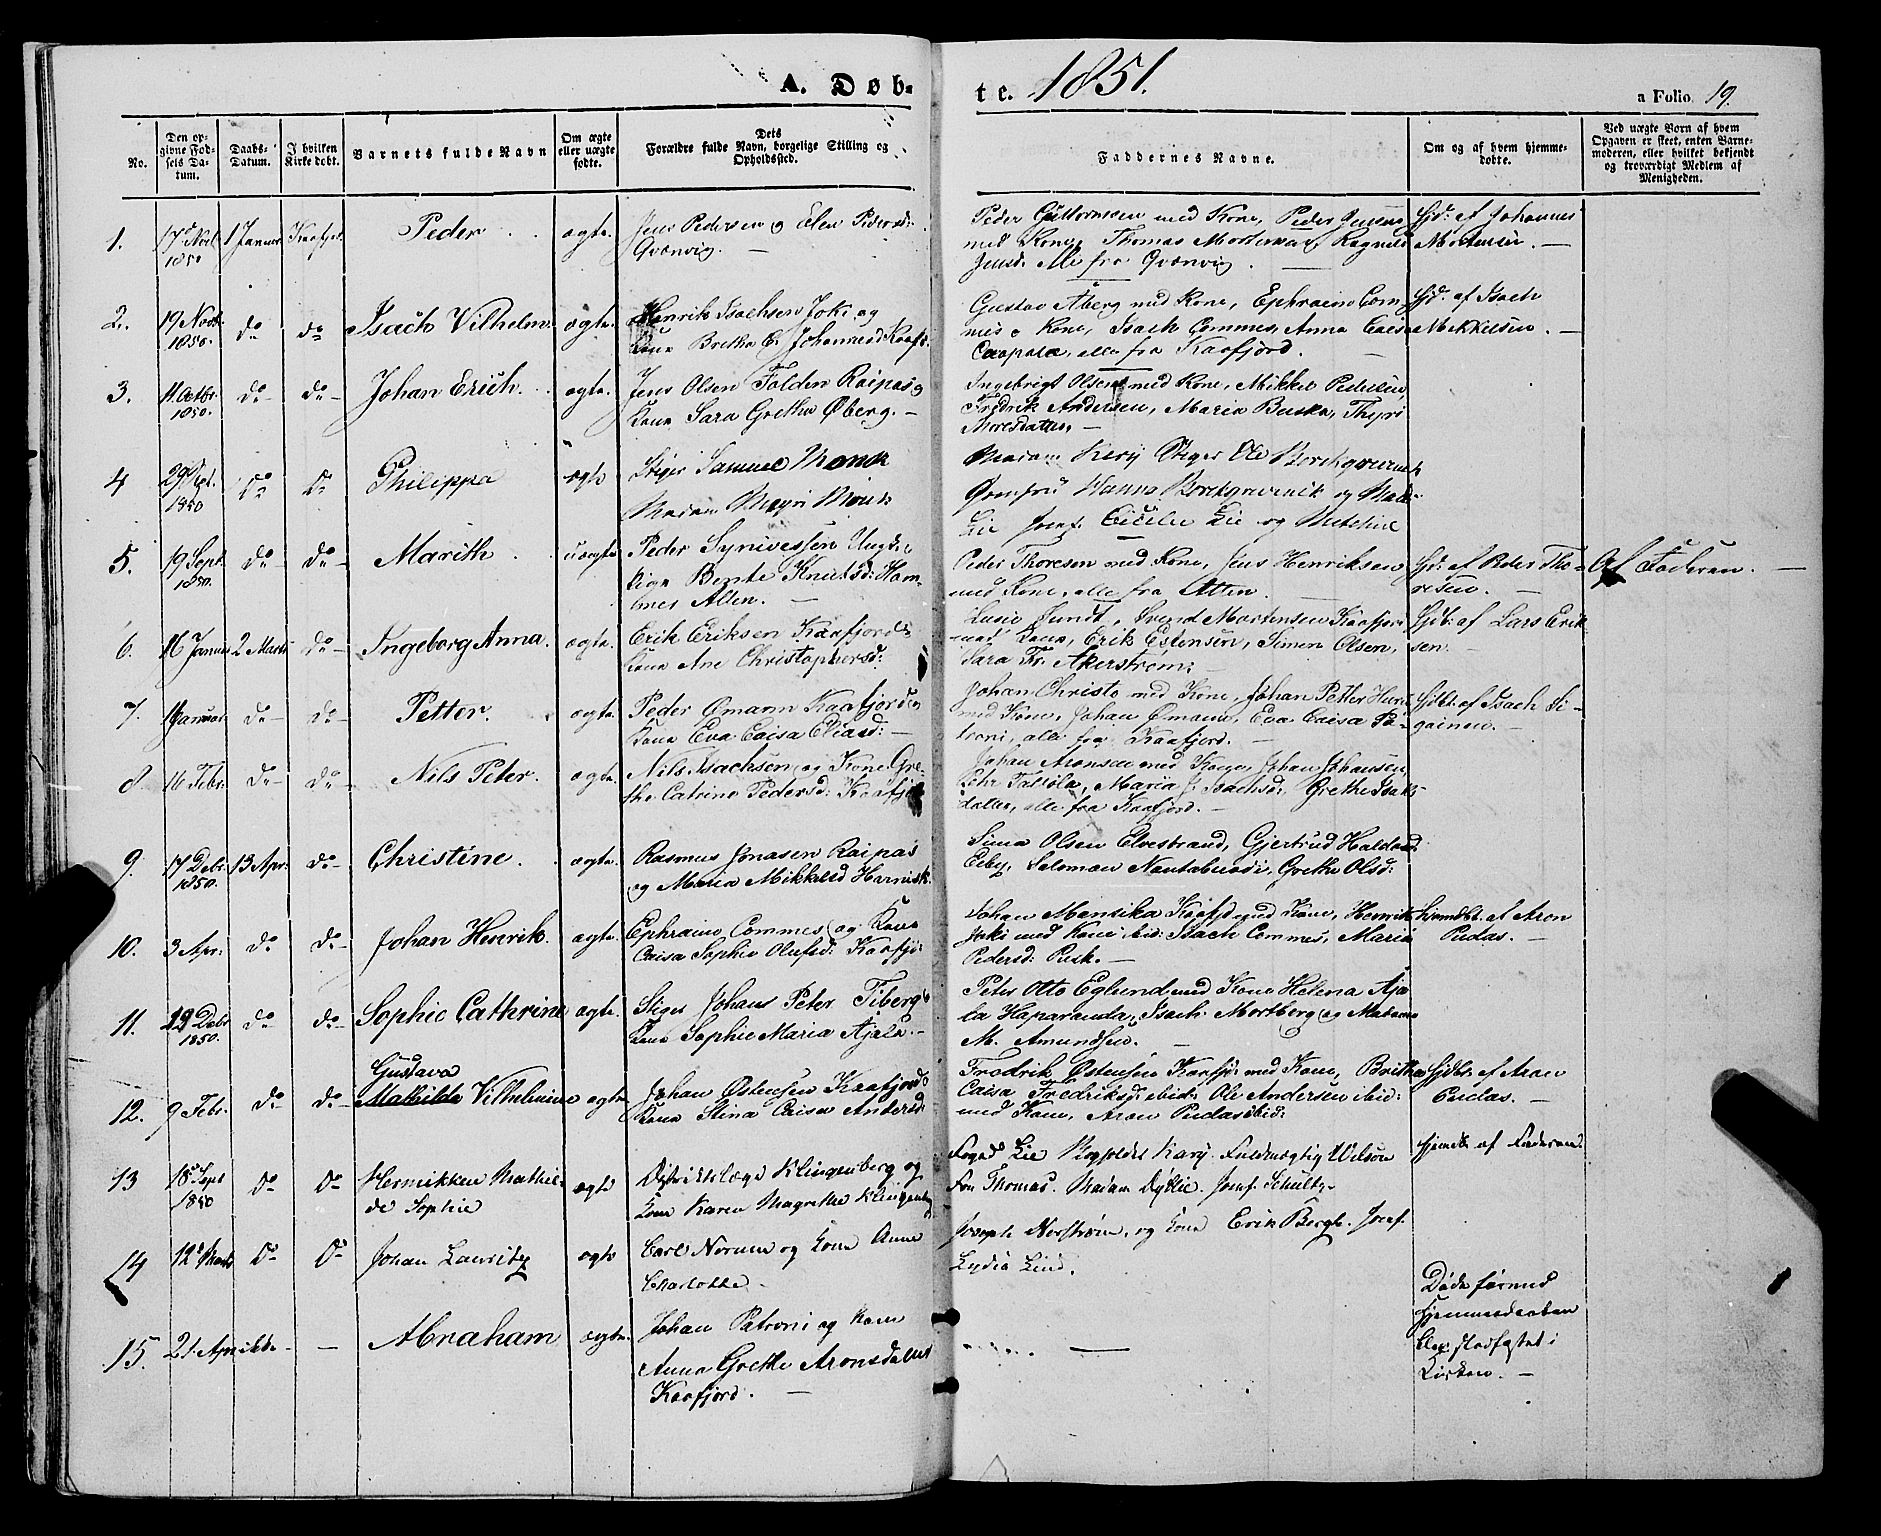 A. Døb-
te. 1851.
a Folio 19.
No.
Den op-
givne Fød-
sels Da-
tum.
Daabs-
Datum.
I hvilken
Kirke døbt.
Barnets fulde Navn
Om ægte
eller uægte
fødte.
Dets
Forældre fulde Navn, borgelige Stilling og
Opholdssted.
Faddernes Navne.
Om og af hvem hjemme-
døbte.
Ved uægte Born af hvem
Opgaven er skeet, enten Barne-
moderen, eller hvilket bekjendt
og troværdigt Medlem af
Menigheden.
1.
1850
1 Januar
Peder
ægte
Jens Pedersen og Elen Pedersd:
Qvænvig. —
Peder Guttormsen med Kone, Peder Jensen
med Kone, Thomas Mortensen, Ragnild
Jensd: alle fra Qvænvig.
Hjd: af Johannes
Mortensen. —
2.
19 Novbr.
1850.
do
do
Isach Vilhelm
ægte.
Henrik Isachsen Joki og
Kone Bretha C. Johannesd Kaafj.
Gustav Åberg med Kone, Ephraim Com-
mes o Kone, Isach Commes, Anna Caisa
alle fra Kaafjord. —
Hjd: af Isach
Mikkelsen. —
3.
11 Octbr.
1850.
do
do
Johan Erich.
ægte.
Jens Olsen Folden Raipas og
Kone Sara Grethe Øberg. —
Ingebrigt Olsen med Kone, Mikkel Pedersen,
Fredrik Andersen, Maria Buska, Thyri
4
1850
Do
Do
Philippa
ægte
Stiger Samuel Monk
Madam Monk
Madam Stiger Ole Borchgrevink
Jomfru Hanna Borchgrevink og Mad:
Lie Jomf. Cicilie Lie og
5.
19 Sept.
1850.
do
do
Marith
uægte
Peder Synivessen Ungdr.
Pige Bente Knutsd: Ham-
mer Alten. —
Peder Thoresen med Kone, Jens Henriksen
med Kone, alle fra Alten.
Hjd: af Peder Tho-
resen. —
Af Faderen. —
6.
16 Januar
2 Marts
do
Ingeborg Anna.
ægte.
Erik Eriksen Kaafjord o
Kone Ane Christophersd:
Lusie Sundt, Svend Mortensen Kaafjord
med Kone, Erik Estensen, Simon Olsen,
Sara Fr. Akerstrøm. —
Hjdt: af Lars Erik-
sen. —
7.
Januar
do
do
Petter.
ægte
Peder Ømann Kaafjord og
Kone Eva Caisa Eliasd: —
Johan Christo med Kone, Johan Petter
med Kone, Johan Ømann, Eva Caisa Pa-
troni, alle fra Kaafjord. —
Hjdt: af Isach Si-
gainen. —
8.
16 Febr.
do
do
Nils Peter.
ægte
Nils Isachsen og Kone Gre-
the Catrine Pedersd: Kaafj.
Johan Aronsen med Kone, Johan Johansen,
Maria J. Isachsd:, Grethe Isaks-
datter, alle fra Kaafjord. —
9.
17 Debr.
1850.
13 Apr:
do
Christine.
ægte.
Rasmus Jonasen Raipas
og Maria Mikkelsd
Simon Olsen Elvestrand, Gjertrud
Eiby, Salomon Grethe Olsd:
10.
3 Apr:
do
do
Johan Henrik.
ægte.
Ephraim Commes og Kone
Caisa Sophie Olufsd: Kaafj:
Johan Mansika Kaafj med Kone, Henrik
Joki med Kone ibid: Isach Commes, Maria
Pedersd: Rusk. —
hjemdbt. af Aron
Pudas. —
11.
Debr
1850.
do
do
Sophie Cathrine
ægte.
Stiger Johan Peter Fiberg o
Kone Sophie Maria Ajala. —
Peter Otto Eglund med Kone Helena Aja-
la Haparanda, Isach Mortberg og Madame
M. Amundsen. —
12.
9 Febr.
do
do
Gustava
Mathilde Vilhelmine
ægte
Johan Østensen Kaafjord o
Kone Stina Caisa Andersd:
Fredrik Østensen Kaafj: med Kone, Britha
Caisa Fredriksd: ibid: Ole Andersen ibid:
med Kone, Aron Pudas ibid:
Hjdbt. af Aron
Pudas. —
13
18 Sept
1850
Do
Do
Hernikken Mathil-
de Sophie
ægte
Distriktslæge Klingenberg og
Kone Karen Magrethe Klingenberg
Foged Lie Fuldmægtig Wilson
Fru Thomas. Madam Jomf. Schultz.
hjemdt af Faderen
14
12 Marts
Do
Do
Johan Lauritz
ægte
Carl Norum og Kone Anne
Charlotte.
Joseph Norstrøm, og Kone Erik Bergt. Jomf.
Lydia Lind.
15.
21 April
—
Abraham
ægte.
Johan Patroni og Kone
Anna Grethe Aronsdatter
Kaafjord. —
—
Døde førend
Hjemmedaaben
blev stadfæstet i
Kirken. —